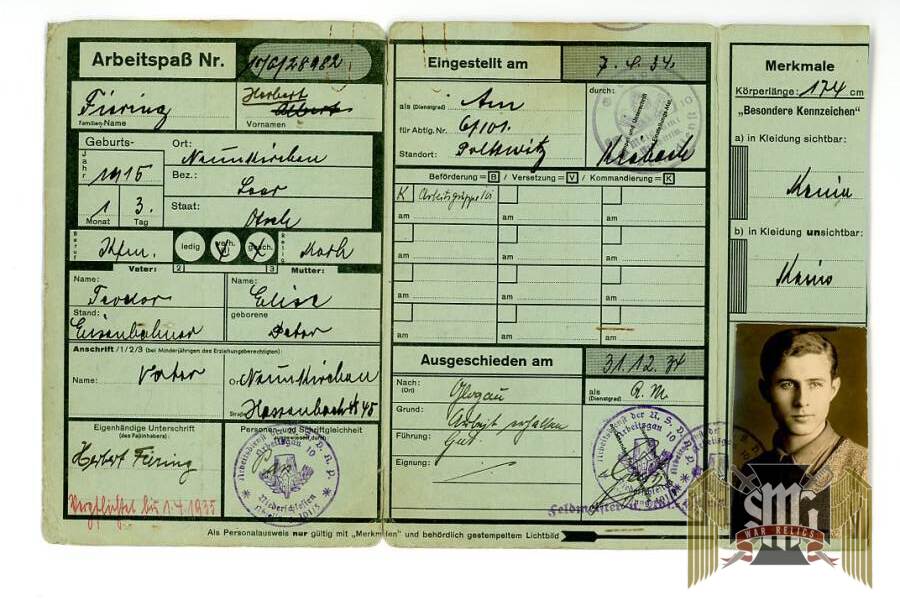 Arbeitspaß Nr. 10/C/28982
Herbert
Albert
Familien-Name
Vornamen
Geburts-
Ort: Neunkirchen
Jahr
1915
Bez.: Saar
1. 3.
Monat Tag
Staat: Dtsch
Beruf Kfm.
ledig
verh.
gesch.
Relig. Kath
Vater: 2 3 Mutter:
Name: Name:
Teodor Elise
Stand: geborene
Eisenbahner Peter
Anschrift /1/2/3 (bei Minderjährigen des Erziehungsberechtigten)
Name: Vater
Ort Neunkirchen
Eigenhändige Unterschrift
(des Paßinhabers)
Personen- und Schriftgleichheit
Herbert
Arbeitsdienst der N.S.D.A.P.
Arbeitsgau 10
Niederschlesien
Verpflichtet bis 1.4.1935
Als Personalausweis nur gültig mit „Merkmalen" und behördlich gestempeltem Lichtbild
Eingestellt am 7.4.34.
als (Dienstgrad) Am
durch:
für Abtlg. Nr. 6/101.
Standort: Polkwitz
Beförderung = B / Versetzung = V / Kommandierung = K
K Arbeitsgruppe
am am am
am am am
am am am
am am am
am am am
Ausgeschieden am 31.12.34
Nach: (Ort) Glogau
als (Dienstgrad) A.M.
Grund: Arbeit erhalten
Führung: Gut.
Eignung:
Arbeitsdienst der N.S.D.A.P.
Arbeitsgau 10
Feldmeister
Merkmale
Körperlänge: 174 cm
„Besondere Kennzeichen"
a) in Kleidung sichtbar:
Keine
b) in Kleidung unsichtbar:
Keine
SMG
WAR RELICS